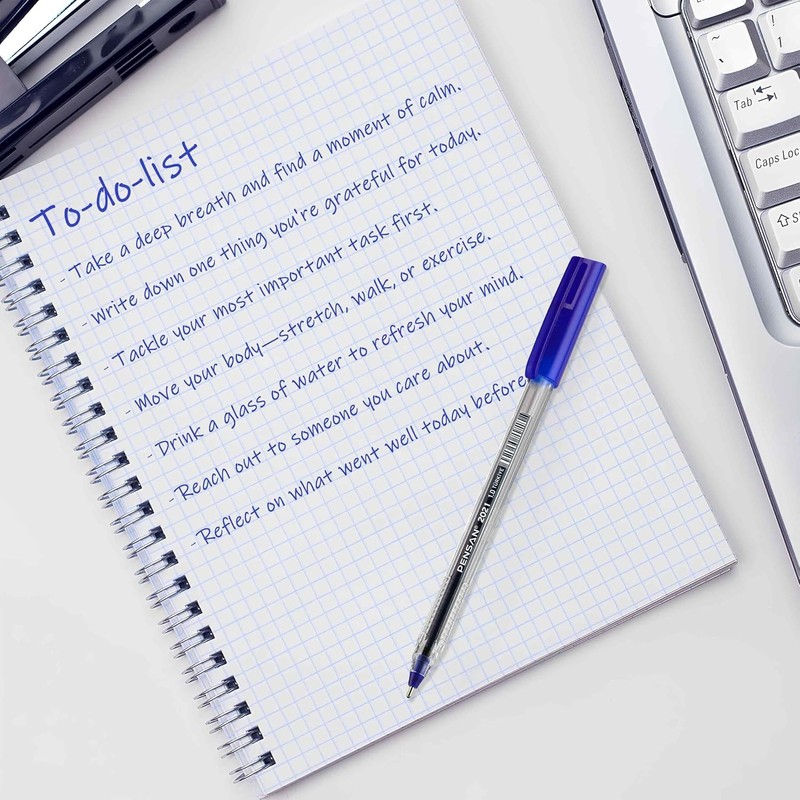 To-do-list
- Take a deep breath and find a moment of calm.
- Write down one thing you're grateful for today.
- Tackle your most important task first.
- Move your body—stretch, walk, or exercise.
- Drink a glass of water to refresh your mind.
- Reach out to someone you care about.
- Reflect on what went well today before
PENSAN® 2021 1.0 TÜRKİYE
~
`
!
1
Tab
Caps Loc